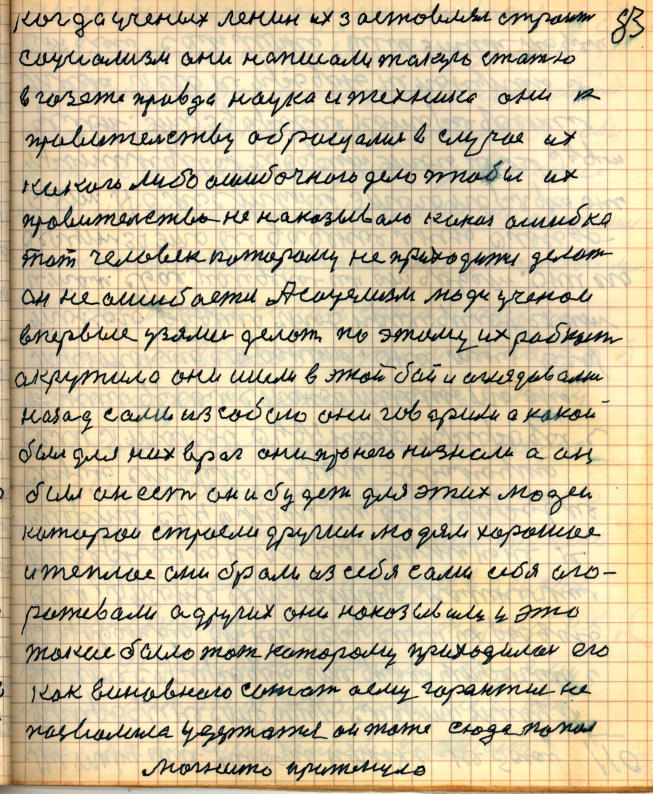 83
когда ученых ленин их заставлял строит
социализм они написали такую статю
в газете правда наука и техника они к
правителству обращалис в случае их
какого либо ошибочного дело чтобы их
правителство не наказывало какая ошибка
тот человек которому не приходити делат
он не ошибаети А социлизм люди ученои
впервые узяли делат по этому их
акружило они шили в этой бой и оглядивали
назад сами из собою они говарили а какой
был для них враг они про него низнали а он
был он ест он и будет для этих людей
которои строели другим людям хорошое
и теплое они брали из себя сами себя ого-
раживали а других они наказывали у это
такое было тот которому приходилос его
как виновного сотат ему гарантии не
позволила удержатя он тоже сюда попал
магнито притенуло